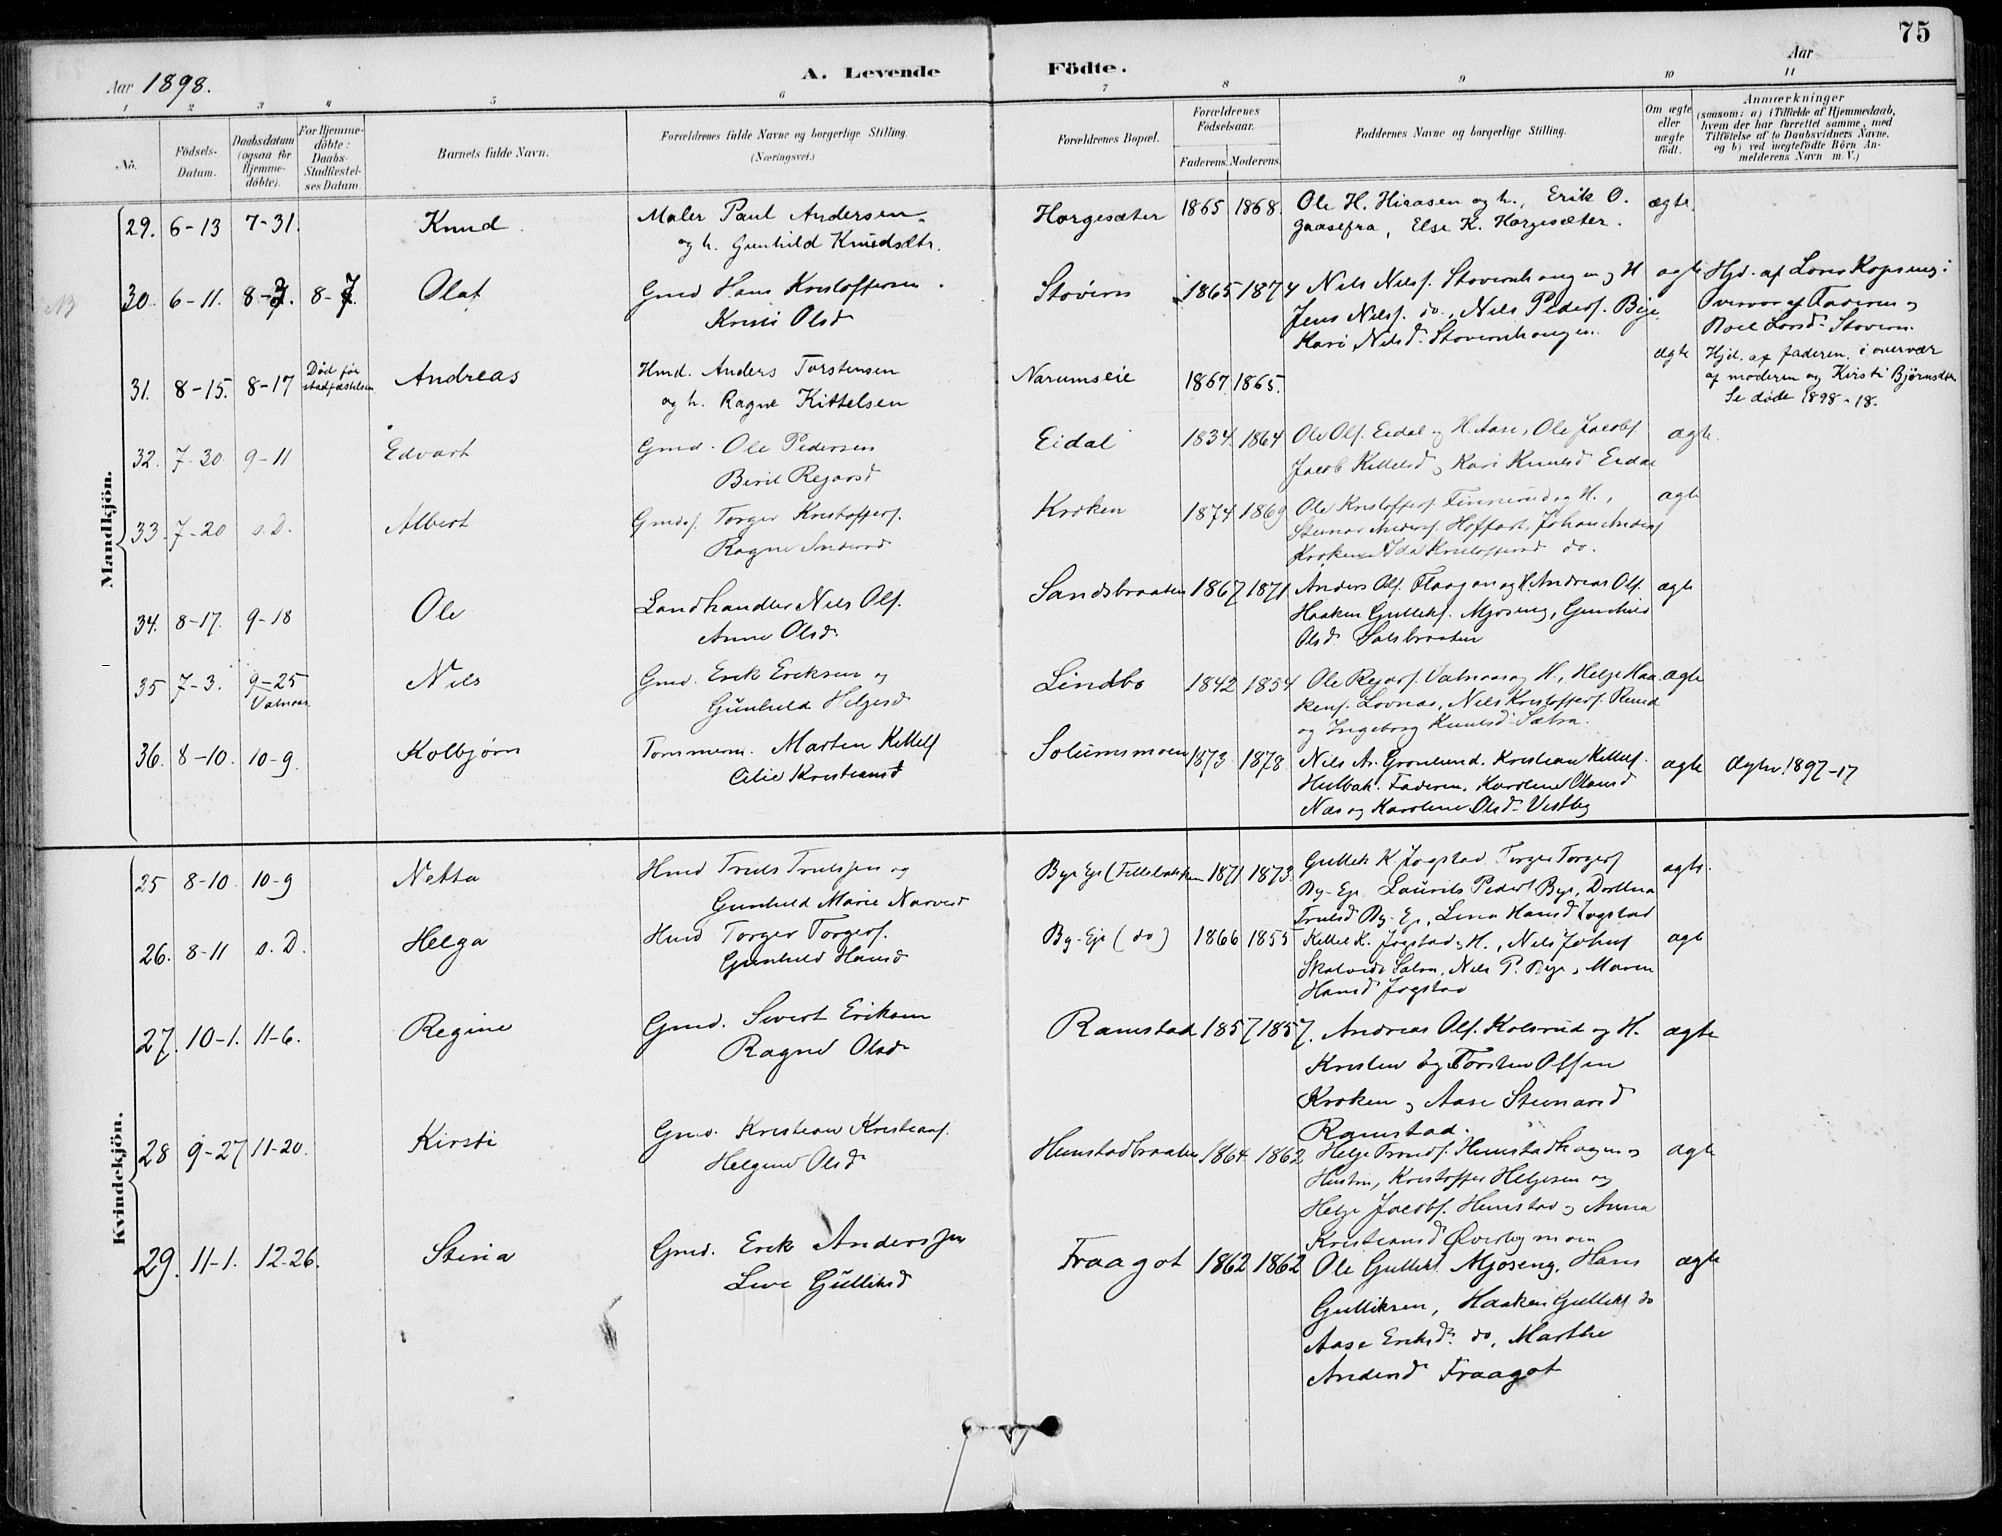 75
Aar 1898.
A. Levende Födte.
Aar
1 2 3 4 5 6 7 8 9 10 11
No.
Födsels-Datum.
Daabsdatum (ogsaa for Hjemme-döbte).
For Hjemme-döbte: Daabs-Stadfæstelses Datum.
Barnets fulde Navn.
Forældrenes fulde Navne og borgerlige Stilling. (Næringsvei.)
Forældrenes Bopæl.
Forældrenes Födselsaar.
Faderens. Moderens.
Faddernes Navne og borgerlige Stilling.
Om ægte eller uægte födt.
Anmærkninger
(saasom: a) i Tilfælde af Hjemmedaab,
hvem der har forrettet samme, med
Tilföielse af to Daabsvidners Navne,
og b) ved uægtefödte Börn An-
melderens Navn m. V.)
Mandkjön.
29. 6-13 7-31. Knud. Maler Paul Andersen Horgesæter 1865 1868. Ole H. Hiraasen og h., Erik O. ægte.
og h. Gunhild Knudsdtr. Gaasefra, Else K. Horgesæter.
30. 6-11. 8-7. 8-7. Olaf Gmd Hans Kristoffersen Stovern 1865 1874 Nils Nilsf. Stovernhaugen og H ægte Hjd. af Lovis Kopseng i
Kristi Olsd Jens Nilsf. do., Nils Pedersf. Bye Overvær af Faderen og
Kari Nilsd. Stovernhaugen. Boel Larsd. Stovern.
31. 8-15. 8-17 Død før stadfæstelsen Andreas Hmd. Anders Torstensen Narumseie 1867. 1865. ægte Hjd. af faderen, i overvær
og h. Ragne Kittelsen af moderen og Kirsti Bjørnsdtr.
Se døde 1898-18.
32. 7-30 9-11 Edvart Gmd. Ole Pedersen Eidal 1834. 1864 Ole Olf. Eidal og H. Aase, Ole Jacobf ægte.
Berit Rejarsd Jacob Kittelsd og Kari Knutsd Eidal
33. 7-20 s.D. Albert Gmdsf. Torger Kristoffersf. Kroken 1874 1869 Ole Kristoffersf Finnerud og H., ægte
Ragne Steinarsd Steinar Andersf Hoffart, Johan Andersf
Kroken, Ida Kristoffersd do.
34. 8-17. 9-18 Ole Landhandler Nils Olf. Sandsbraaten 1867 1871 Anders Olf. Flaagan og H. Andreas Olf. ægte
Anne Olsd. Haaken Gullikf. Mjøseng, Gunhild
Olsd.
35 7-3. 9-25 Nils Gmd. Erik Eriksen og Lindbo 1842 1854 Ole Rejarsf. og H., Helge Haa- ægte
Gunhild Helgesd kensf. Lovnæs, Nils Kristoffersf. Ruud
og Ingeborg Knutsd. Sætra.
36. 8-10. 10-9. Kolbjørn Tømmerm. Marten Kittelf Solumsmoen 1873. 1878. Nils A. Grønlund. Kristian Kittelf. ægte Ægtev. 1897-17
Cilie Kristiansd Hulbak. Faderen. Karoline Olausd
Næs og Karoline Olsd. Vestby
Kvindekjön.
25 8-10 10-9 Netta Hmd Truls Trulssen og Bye Eje 1871 1873. Gullik K Jogstad Torger Torgersf ægte.
Gunhild Marie Narvesd By-Eje, Laurits Pedersf Bye, Dorthea
Trulsd By-Eje, Lina Hansd Jogstad
26. 8-11 s.D. Helga Hmd Torger Torgersf. By-Eje (do) 1866 1855 Kittel K. Jogstad og H., Nils Johnsf ægte
Gunhild Hansd Sætra, Nils P. Bye, Maren
Hansd Jogstad
27. 10-1. 11-6. Regine Gmd. Sivert Eriksen Ramstad 1857 1857. Andreas Olf. Kolsrud og H. ægte
Ragne Olsd Kristen og Torsten Olsen
Kroken og Aase Steinarsd
Ramstad.
28 9-27 11-20. Kirsti Gmd. Kristian Kristiansf. Hemstadbraaten 1864. 1862 Helge Trondsf. Hemstadhagen og ægte
Helgine Olsd Hustru, Kristoffer Helgesen og
Helge Jacobsf. Hemstad og Anna
Kristiansd Øverbymoen
29. 11-1. 12-26. Stina Gmd. Erik Anderssen Fraagot 1862 1862 Ole Gulliksf. Mjøseng, Hans ægte
Live Gulliksd Gulliksen, Haaken Gulliksf do
Aase Eriksd. do, Marthe
Andersd Fraagot